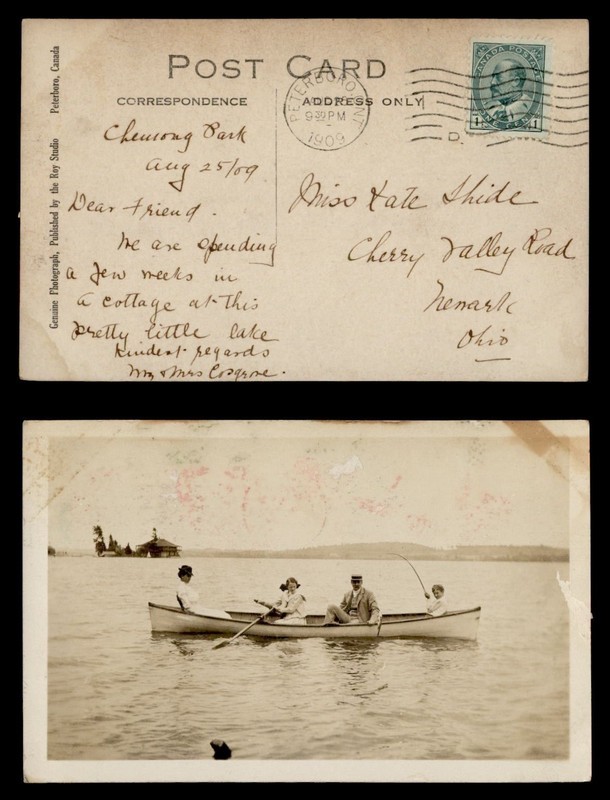 POST CARD
CORRESPONDENCE
ADDRESS ONLY
Genuine Photograph, Published by the Roy Studio Peterboro, Canada
PETERBORO. ONT
9-30 PM
1909
CANADA POSTAGE
1 CENT 1
Chemong Park
Aug 25/09
Dear Friend.
We are spending
a few weeks in
a cottage at this
pretty little lake
Kindest regards
Mr & Mrs Cosgrove.
Miss Kate Shide
Cherry Valley Road
Newark
Ohio